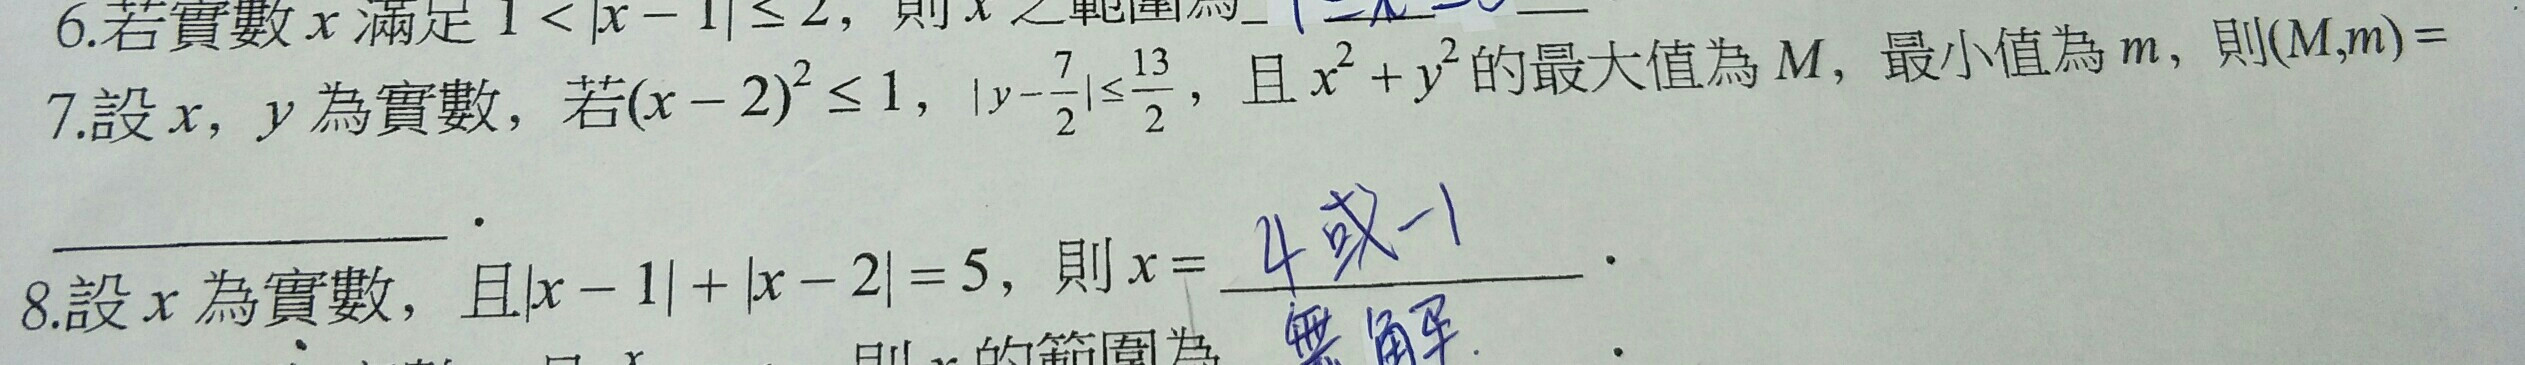 6.若實數 x 滿足 1 < |x − 1| ≤ 2，則 x 之範圍為
7.設 x，y 為實數，若(x − 2)² ≤ 1，|y − 7/2| ≤ 13/2，且 x² + y² 的最大值為 M，最小值為 m，則(M,m) =
________．
8.設 x 為實數，且|x − 1| + |x − 2| = 5，則 x = 4或-1．
則 x 的範圍為 無解．